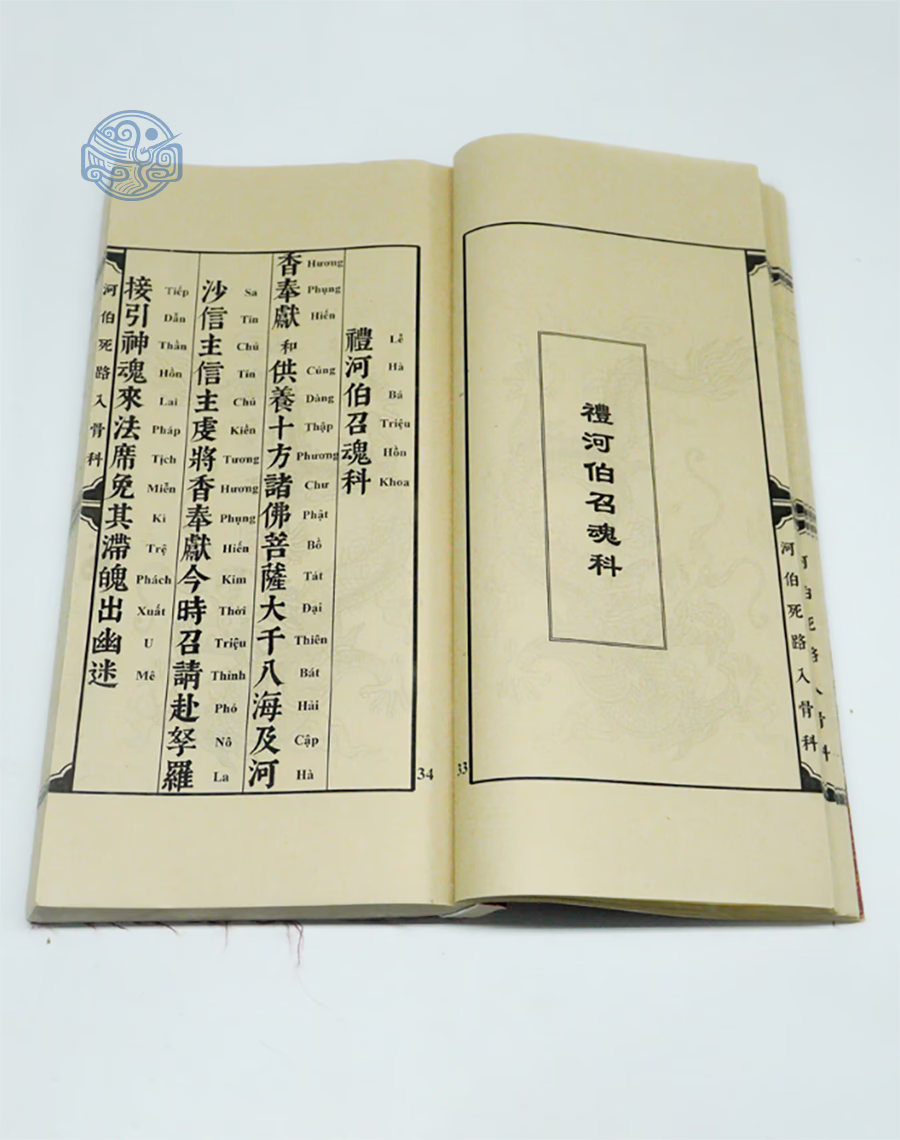 禮河伯召魂科
河伯死路入骨科
33
禮河伯召魂科
Lễ Hà Bá Triệu Hồn Khoa
香奉獻 和 供養十方諸佛菩薩大千八海及河
Hương Phụng Hiến Cúng Dàng Thập Phương Chư Phật Bồ Tát Đại Thiên Bát Hải Cập Hà
沙信主信主虔將香奉獻今時召請赴孥羅
Sa Tín Chủ Tín Chủ Kiền Tương Hương Phụng Hiến Kim Thời Triệu Thỉnh Phó Nô La
接引神魂來法席免其滯魄出幽迷
Tiếp Dẫn Thần Hồn Lai Pháp Tịch Miễn Kì Trệ Phách Xuất U Mê
河伯死路入骨科
34